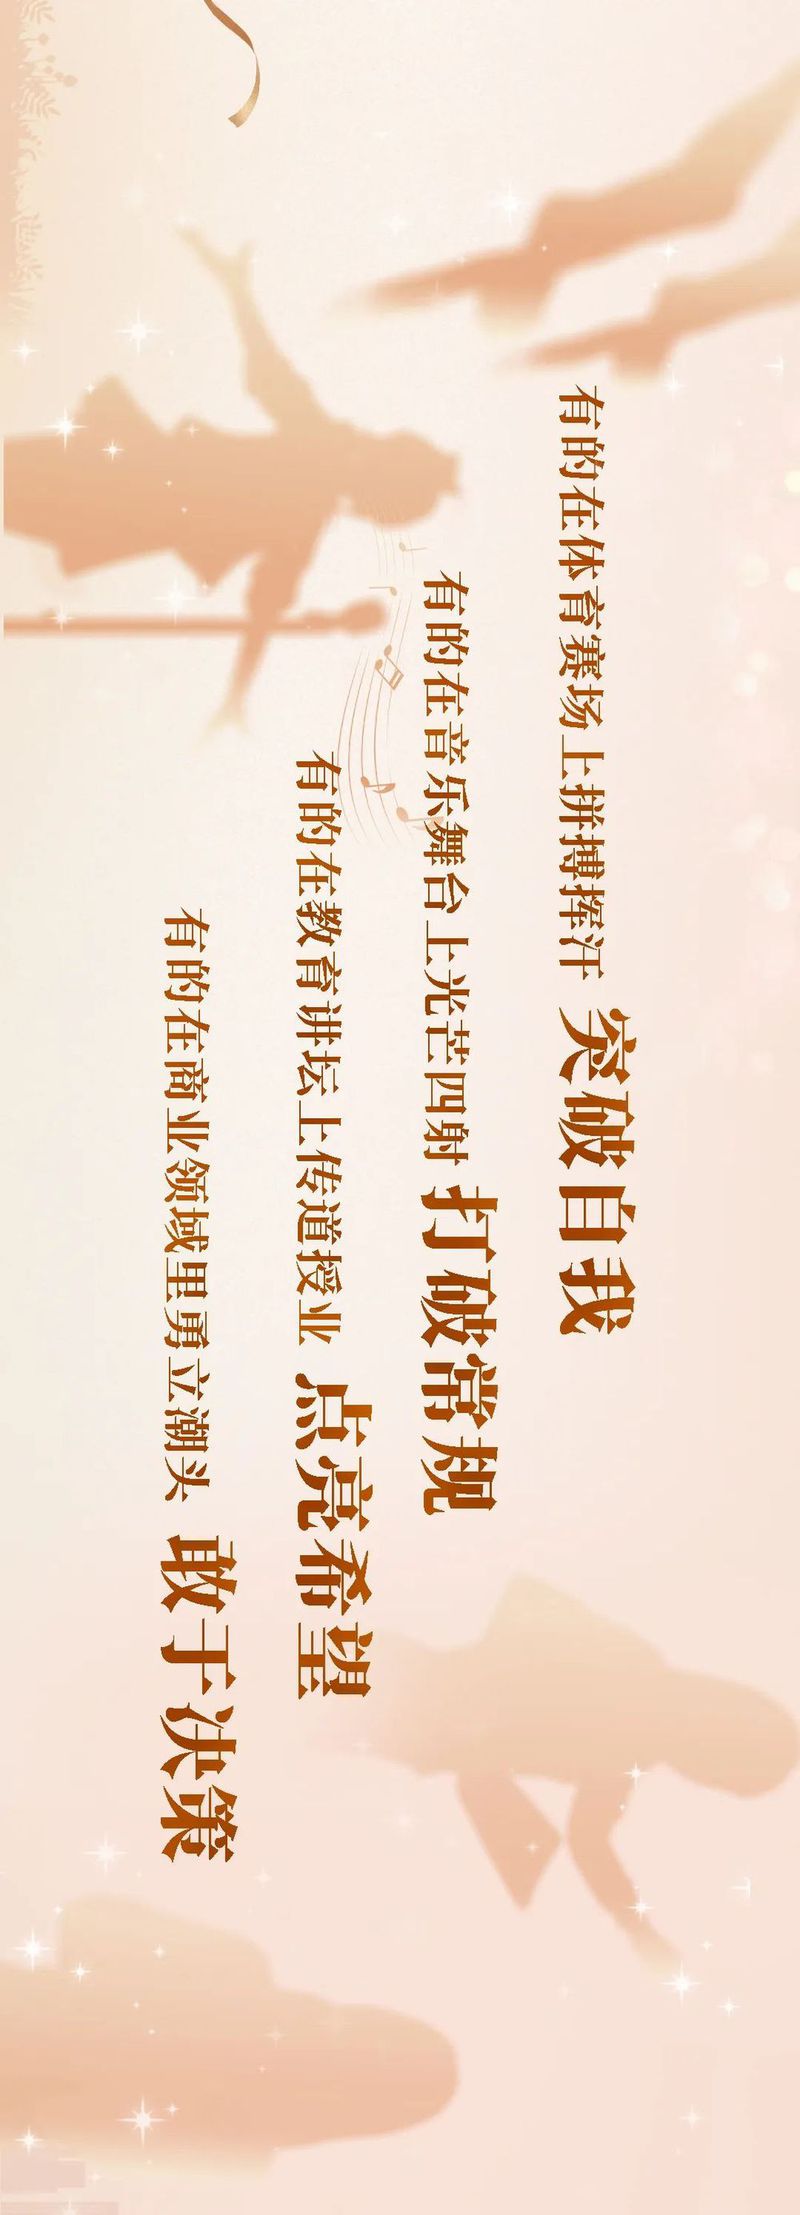 有的在体育赛场上拼搏挥汗 突破自我
有的在音乐舞台上光芒四射 打破常规
有的在教育讲坛上传道授业 点亮希望
有的在商业领域里勇立潮头 敢于决策